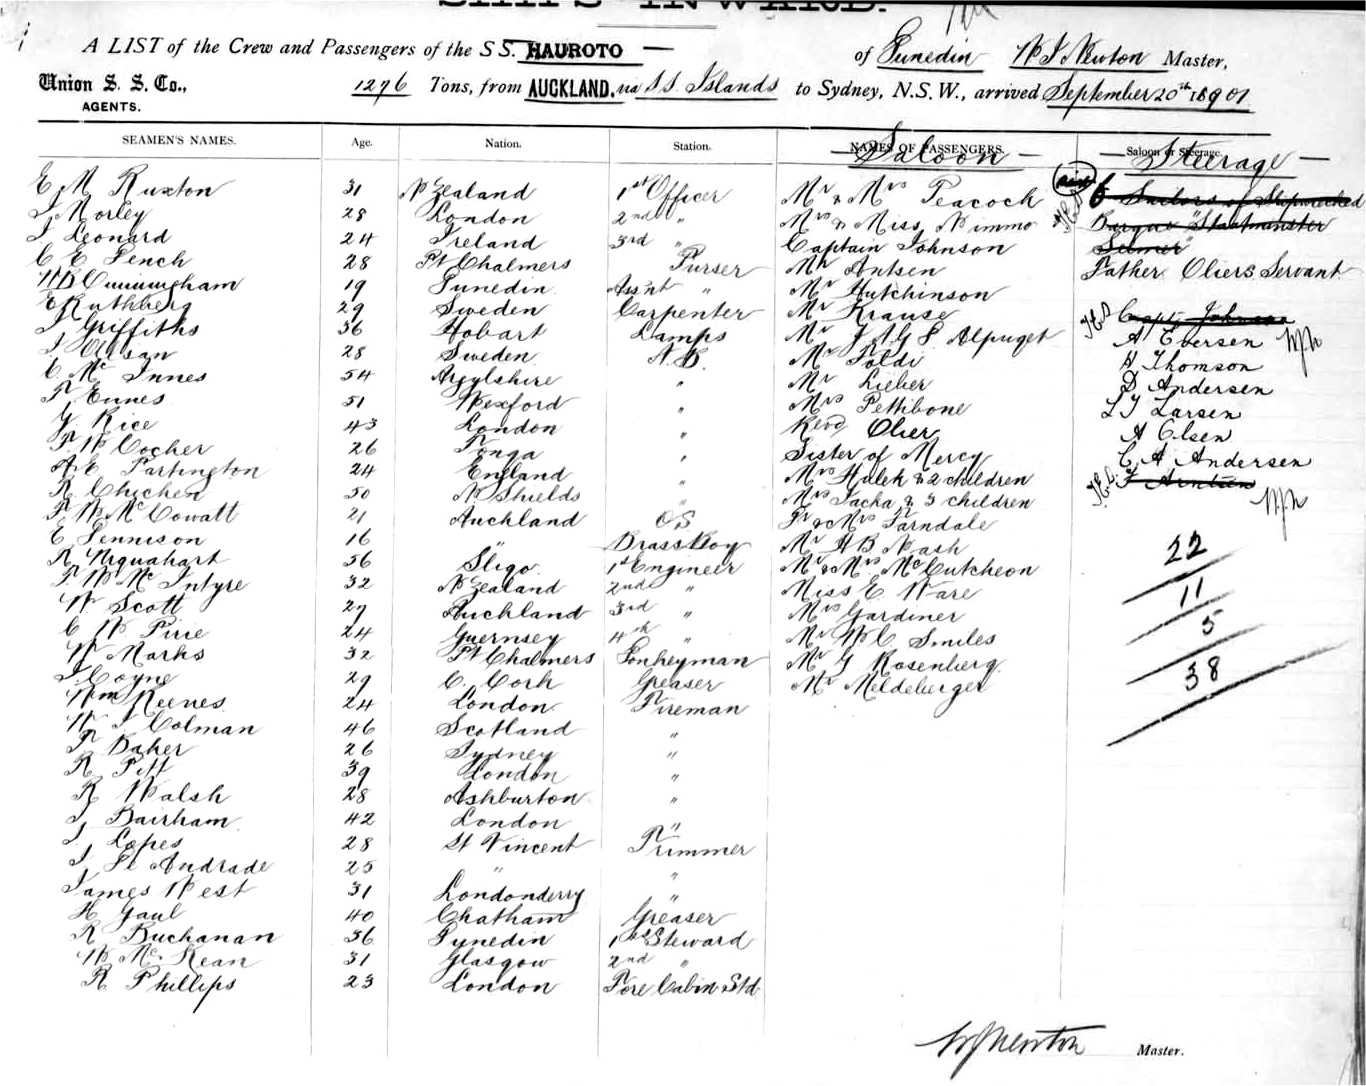 SHIPS INWARD.
A LIST of the Crew and Passengers of the S.S. HAUROTO — of Dunedin W J Newton Master,
Union S. S. Co., AGENTS. 1276 Tons, from AUCKLAND, via S.S. Islands to Sydney, N.S.W., arrived September 20th 1901
SEAMEN'S NAMES. Age. Nation. Station. NAMES OF PASSENGERS. Saloon or Steerage.
Saloon — Steerage —
E M Ruxton 31 N Zealand 1st Officer Mr & Mrs Peacock 6 Sailors of Shipwrecked
J Morley 28 London 2nd " Mrs & Miss Nimmo Barque
J Leonard 24 Ireland 3rd " Captain Johnson
C E Fench 28 Pt Chalmers Purser Mr Antsen Father Oliers Servant
W B Cunningham 19 Dunedin Ass'nt " Mr Hutchinson
E Ruthberg 29 Sweden Carpenter Mr Krause Capt Johnson
J Griffiths 36 Hobart Lamps Mr J A G S Alpuget A Evensen
J Olsson 28 Sweden A.B. Mr Foldi A Thomson
C Mc Innes 54 Argylshire " Mr Lieber D Andersen
P Ennes 51 Wexford " Mrs Pettibone L J Larsen
G Rice 43 London " Revd Olier A Olsen
F W Cocher 26 Tonga " Sister of Mercy C A Andersen
A E Partington 24 England " Mrs Hulek & 2 children F Arntsen
R Chicken 50 N Shields " Mrs Sacha & 3 children
F W McCowatt 21 Auckland O S Dr & Mrs Farndale
E Tennison 16 " Brass Boy Mr H B Nash 22
R Urquahart 36 Sligo 1st Engineer Mr & Mrs McCutcheon
F W Mc Intyre 32 N Zealand 2nd " Miss E Ware 11
W Scott 27 Auckland 3rd " Mrs Gardiner
C W Pirie 24 Guernsey 4th " Mr W C Smiles 5
W Marks 32 Pt Chalmers Donkeyman Mr G Rosenberg 38
J Coyne 29 C. Cork Greaser Mr Meldeberger
Wm Reeves 24 London Fireman
W J Colman 46 Scotland "
P Baker 26 Sydney "
R Pitt 39 London "
R Walsh 28 Ashburton "
J Bairham 42 London "
J Lopes 28 St Vincent Trimmer
J St Andrade 25 " "
James West 31 Londonderry "
H Gaul 40 Chatham Greaser
R Buchanan 36 Dunedin 1st Steward
W McKean 31 Glasgow 2nd "
R Phillips 23 London Fore Cabin Std
W J Newton Master.